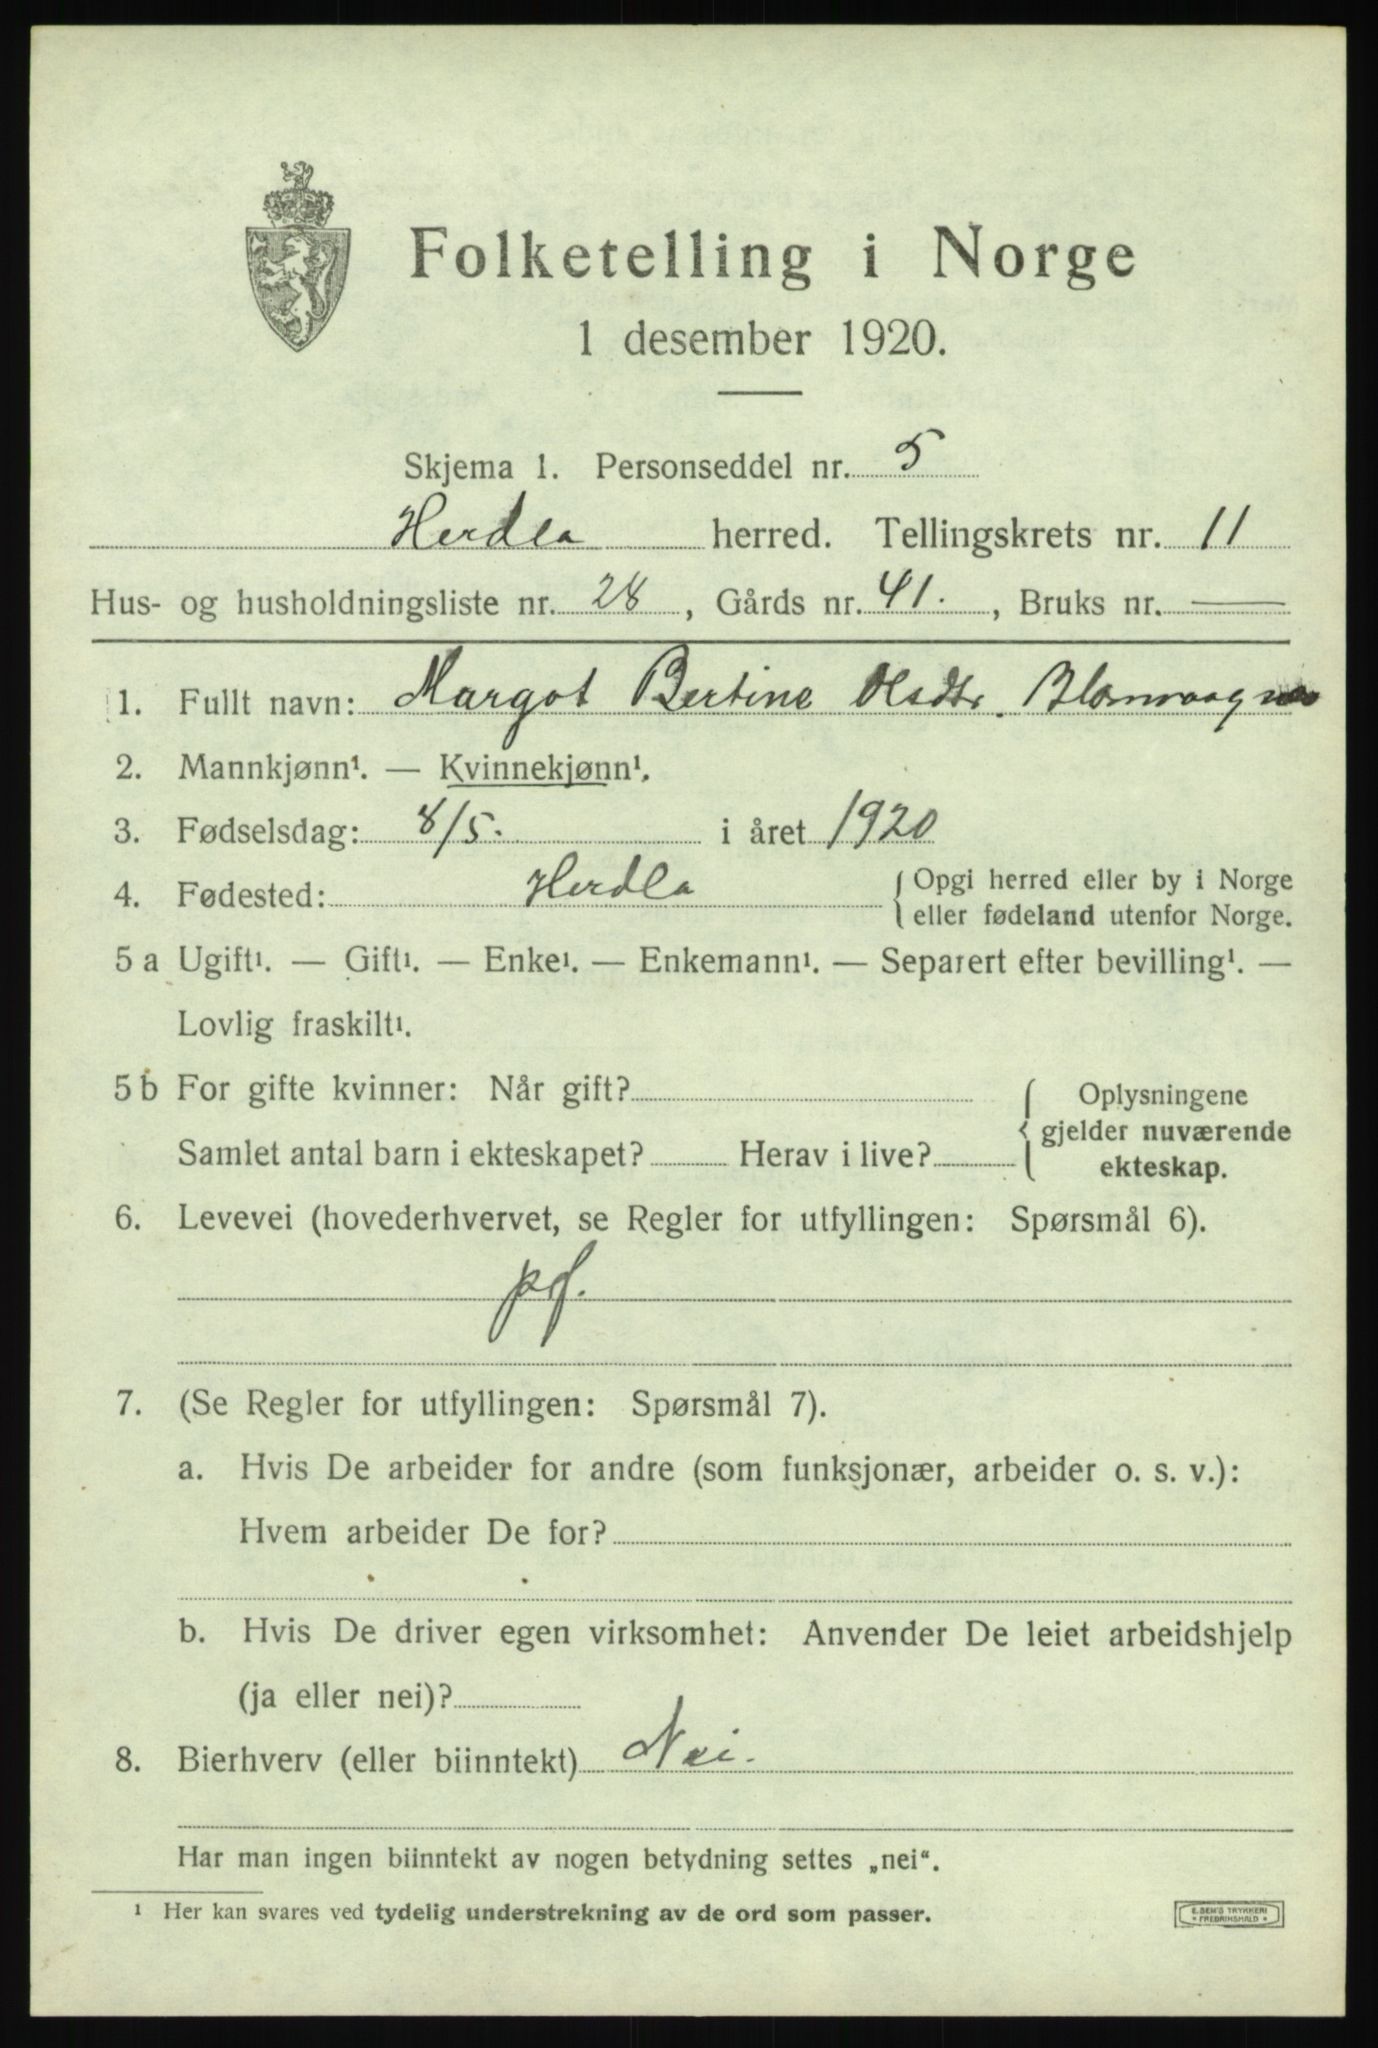 Folketelling i Norge
1 desember 1920.
Skjema 1. Personseddel nr. 5
Herdla herred. Tellingskrets nr. 11
Hus- og husholdningsliste nr. 28, Gårds nr. 41., Bruks nr. —
1. Fullt navn: Margot Bertine Olsdtr.
2. Mannkjønn¹. — Kvinnekjønn¹.
3. Fødselsdag: 8/5. i året 1920
4. Fødested: Herdla { Opgi herred eller by i Norge
eller fødeland utenfor Norge.
5 a Ugift¹. — Gift¹. — Enke¹. — Enkemann¹. — Separert efter bevilling¹. —
Lovlig fraskilt¹.
5 b For gifte kvinner: Når gift? { Oplysningene
gjelder nuværende
Samlet antal barn i ekteskapet? Herav i live? ekteskap.
6. Levevei (hovederhvervet, se Regler for utfyllingen: Spørsmål 6).
7. (Se Regler for utfyllingen: Spørsmål 7).
a. Hvis De arbeider for andre (som funksjonær, arbeider o. s. v.):
Hvem arbeider De for?
b. Hvis De driver egen virksomhet: Anvender De leiet arbeidshjelp
(ja eller nei)?
8. Bierhverv (eller biinntekt) Nei.
Har man ingen biinntekt av nogen betydning settes „nei“.
¹ Her kan svares ved tydelig understrekning av de ord som passer.
E. SEM'S TRYKKERI
* FREDRIKSHALD *